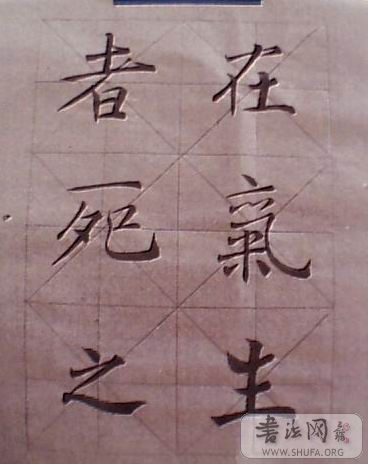 在氣生
者死之
書法网
WWW.SHUFA.ORG